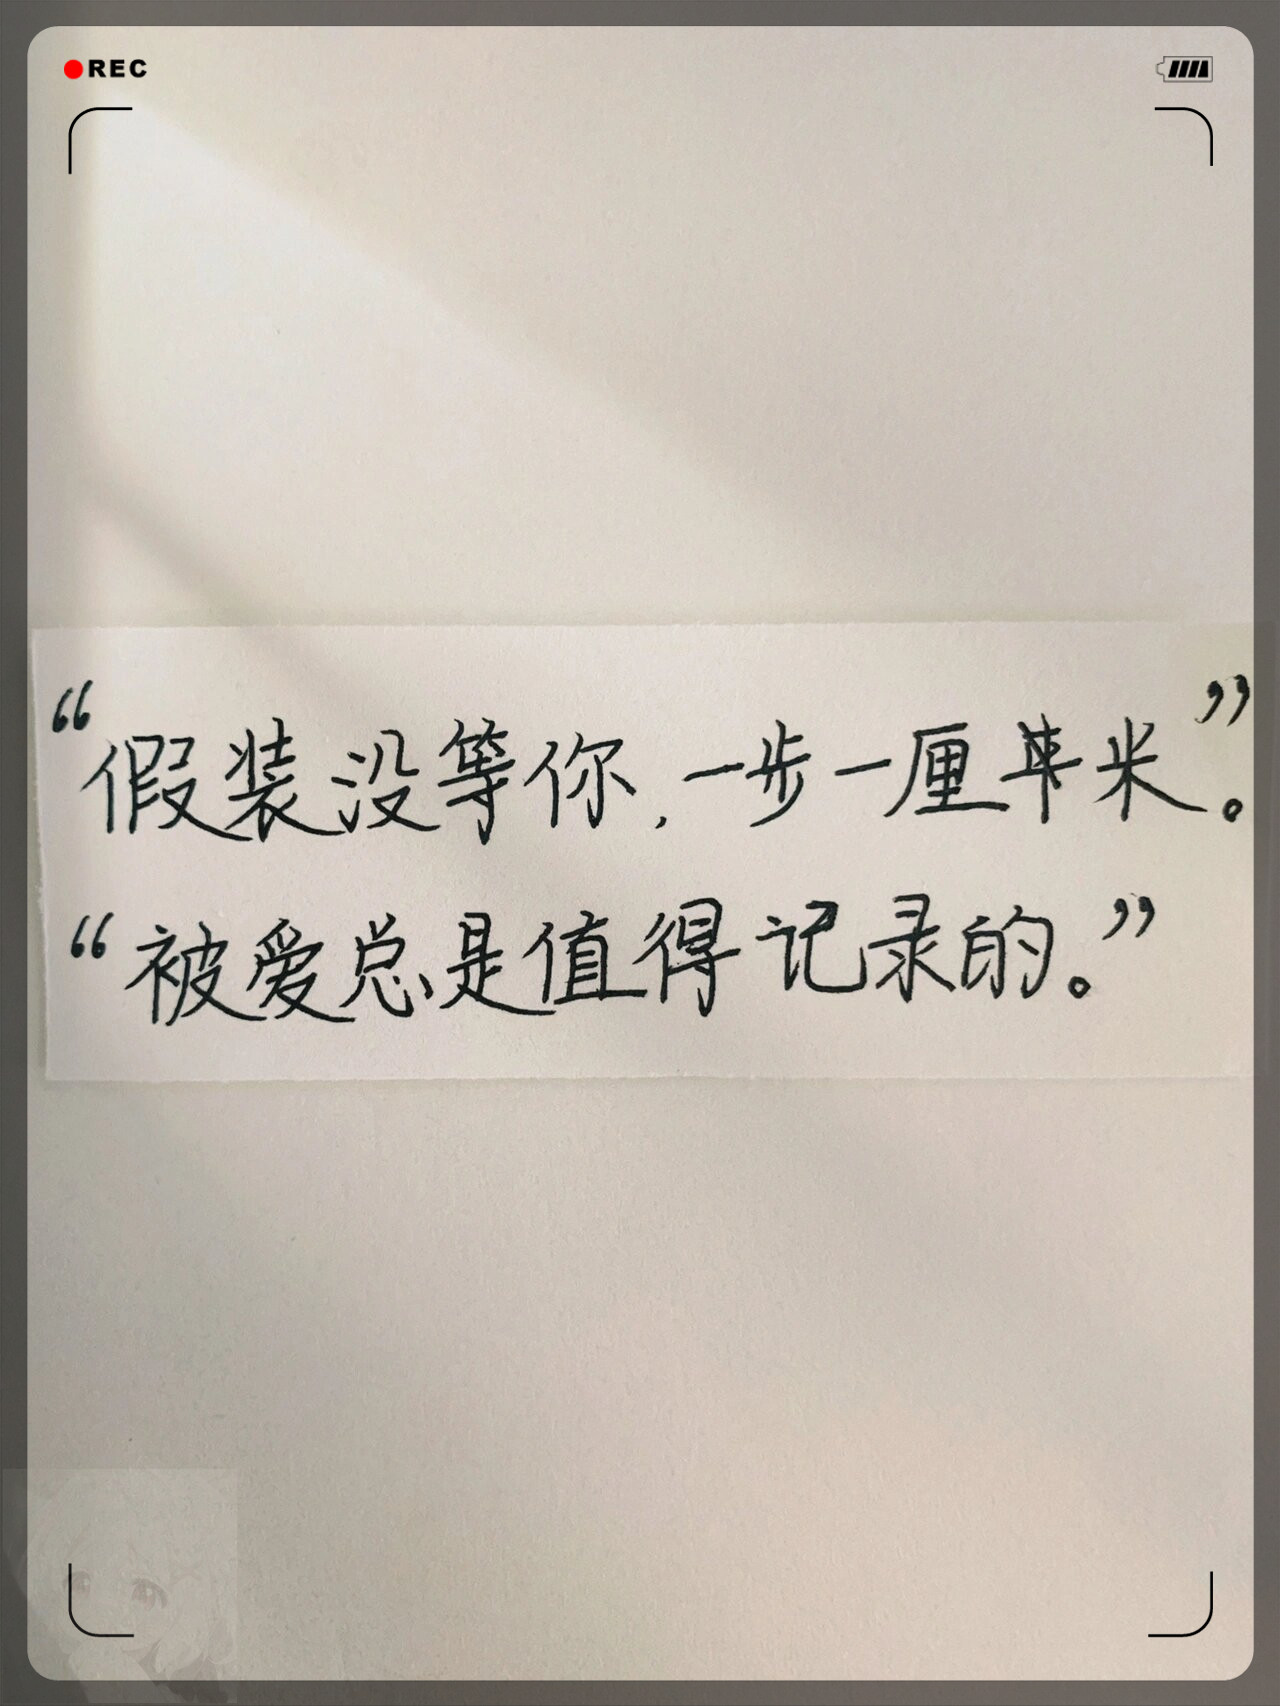 REC
“假装没等你,一步一厘米”。
“被爱总是值得记录的。”